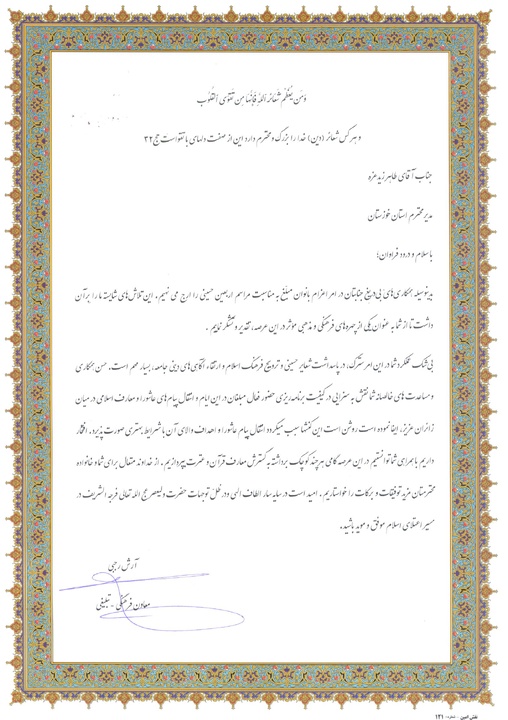 وَمَن یُعَظِّم شَعائِرَ اللهِ فَإِنَّها مِن تَقوَی القُلُوب
و هر کس شعائر (دین) خدا را بزرگ و محترم دارد این از صفت دلهای با تقواست حج ۳۲
جناب آقای طاهر زیدعزه
مدیر محترم استان خوزستان
با سلام و درود فراوان؛
بدینوسیله همکاری‌های بی‌دریغ جنابتان در امر اعزام بانوان مبلغ به مناسبت مراسم اربعین حسینی را ارج می نهیم. این تلاش های شایسته ما را بر آن
داشت تا از شما به عنوان یکی از چهره‌های فرهنگی و مذهبی موثر در این عرصه، تقدیر و تشکر نماییم.
بی‌شک عملکرد شما در این امر مشترک، در پاسداشت شعایر حسینی و ترویج فرهنگ اسلام و ارتقاء آگاهی‌های دینی جامعه، بسیار مهم است. حسن همکاری
و مساعدت های خالصانه شما نقش به سزایی در کیفیت برنامه‌ریزی حضور فعال مبلغان در این ایام و انتقال پیام‌های عاشورا و معارف اسلامی در میان
زائران عزیز، ایفا نموده است روشن است این کنشها سبب میگردد انتقال پیام عاشورا و اهداف والای آن با شرایط بهتری صورت پذیرد. افتخار
داریم با همراهی شما توانستیم در این عرصه گامی هر چند کوچک برداشته به گسترش معارف قرآن و عترت بپردازیم. از خداوند متعال برای شما و خانواده
محترمتان مزید توفیقات و برکات را خواستاریم. امید است در سایه سار الطاف الهی و در ظل توجهات حضرت ولیعصر عجل الله تعالی فرجه الشریف در
مسیر اعتلای اسلام موفق و موید باشید.
آرش رجبی
معاون فرهنگی - تبلیغی
نقش آفرین - شماره: ۱۲۱